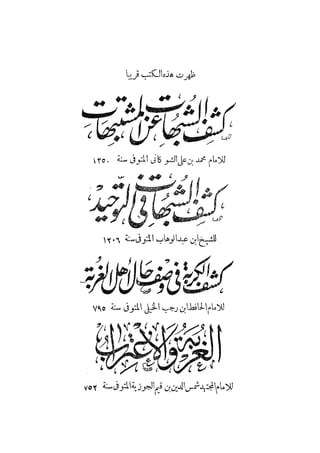 ظهرت هذه الكتب قريبا
كشف الشبهات عن المشتبهات
للامام محمد بن علي الشوكاني المتوفى سنة ١٢٥٠
كشف الشبهات في التوحيد
للشيخ ابن عبد الوهاب المتوفى سنة ١٢٠٦
كشف الكربة في وصف حال أهل الغربة
للامام الحافظ ابن رجب الحنبلي المتوفى سنة ٧٩٥
الغربة والاغتراب
للامام المجتهد شمس الدين بن قيم الجوزية المتوفى سنة ٧٥٢